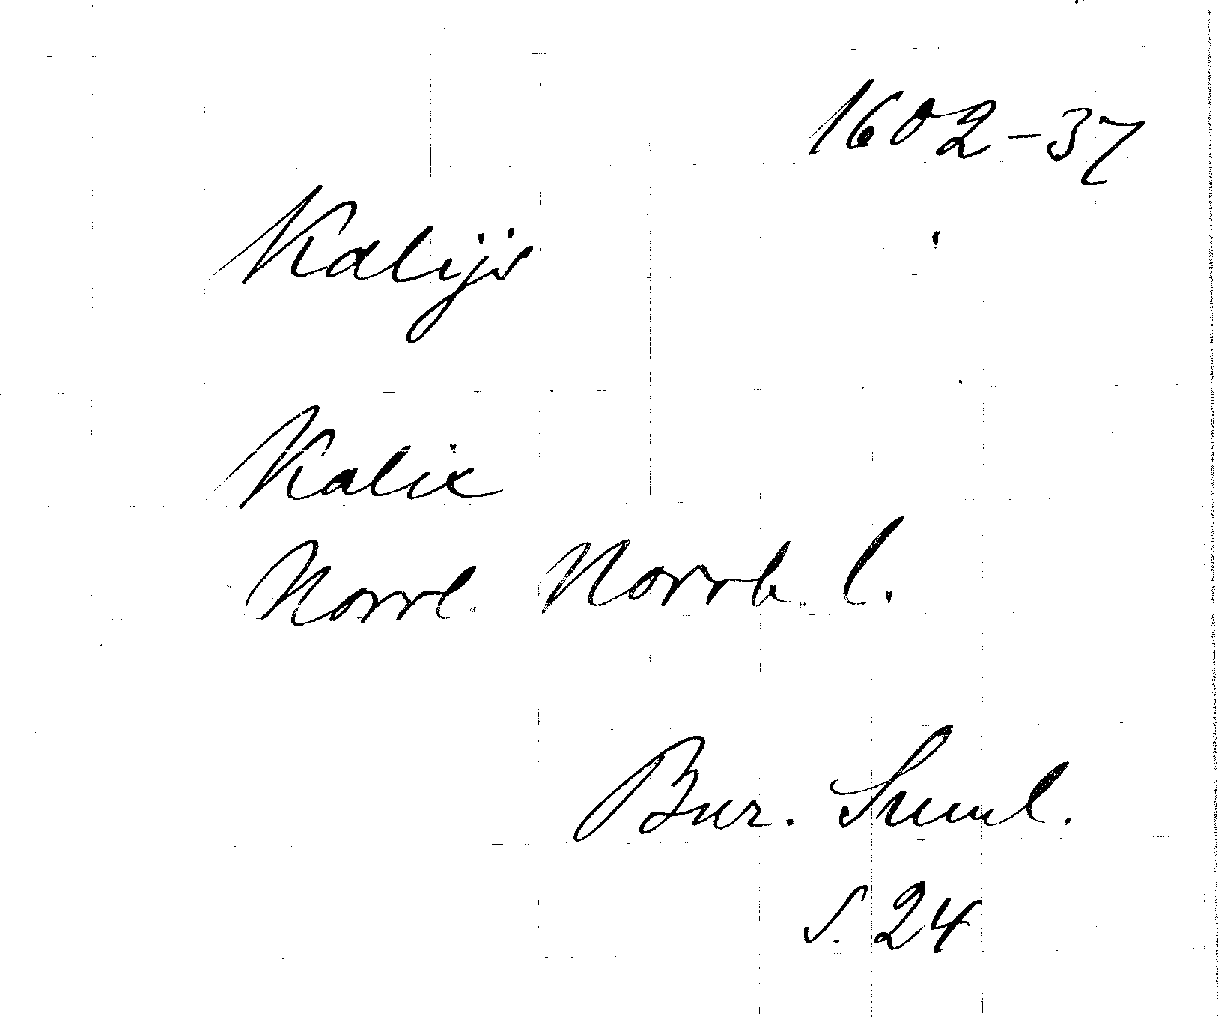 1602-37
Kalijs
Kalix
Norrl. Norrb. l.
Bur. Suml.
s. 24